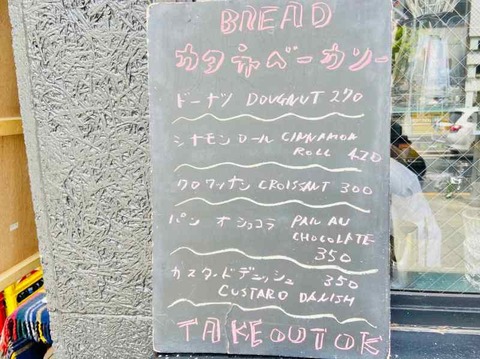 BREAD
カタネベーカリー
ドーナツ DOUGNUT 270
シナモンロール CINNAMON
ROLL 420
クロワッサン CROISSANT 300
パン オ ショコラ PAIN AU
CHOCOLATE
350
カスタードデニッシュ 350
CUSTARD DANISH
TAKEOUT OK